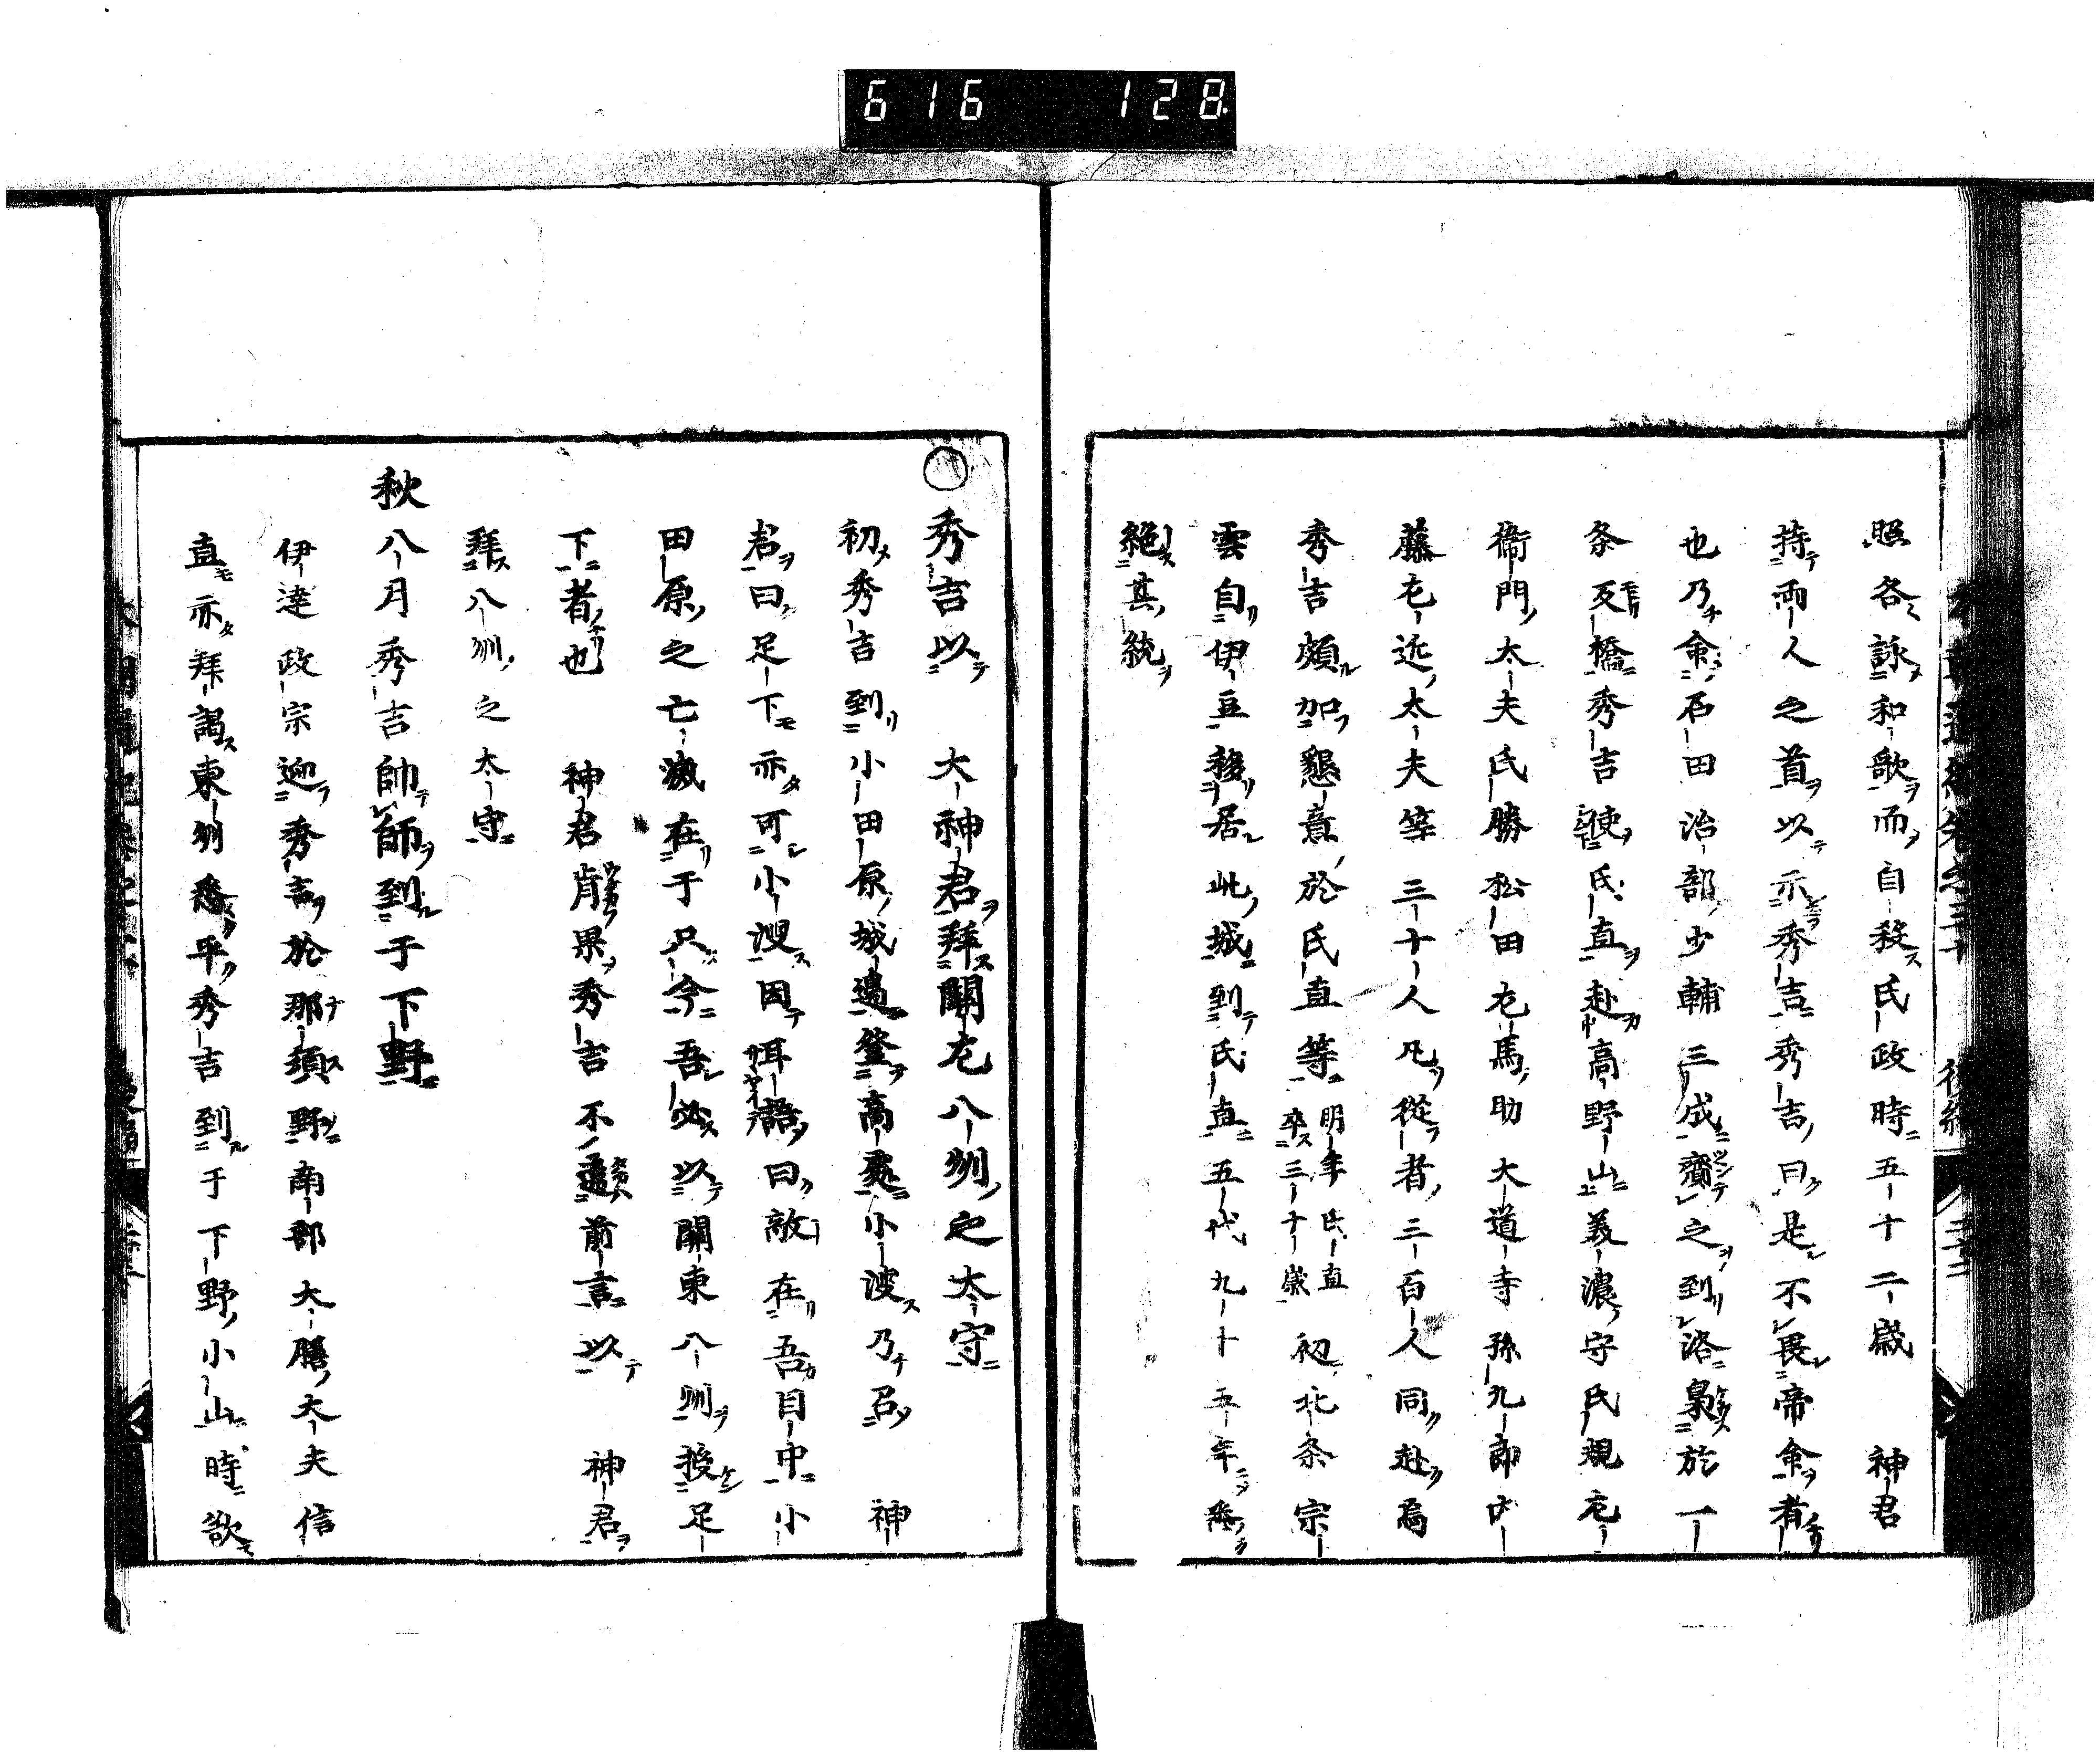 616 128
照各詠和歌而自殺氏政時五十二歳 神君
持両人之首以示秀吉秀吉曰是不畏帝命者
也乃命石田治部少輔三成齎之到洛梟於一
条反橋秀吉使氏直赴高野山美濃守氏規左
衛門太夫氏勝松田左馬助大道寺孫九郎内
藤左近太夫等三十人凡從者三百人同赴焉
秀吉頗加懇意於氏直等明年氏直卒三十歳初北条宗
雲自伊豆移居此城到氏直五代九十五年悉
絶其統
○秀吉以 大神君拜關左八州之太守
初秀吉到小田原城邊登高處小溲乃召 神
君曰足下亦可小溲因耳語曰敵在吾目中小
田原之亡滅在于只今吾必以關東八州授足
下者也 神君肯果秀吉不違前言以 神君
拜八州之太守
秋八月秀吉帥師到于下野
伊達政宗迎秀吉於那須野南部大膳大夫信
直亦拜謁東州悉平秀吉到于下野小山時欲